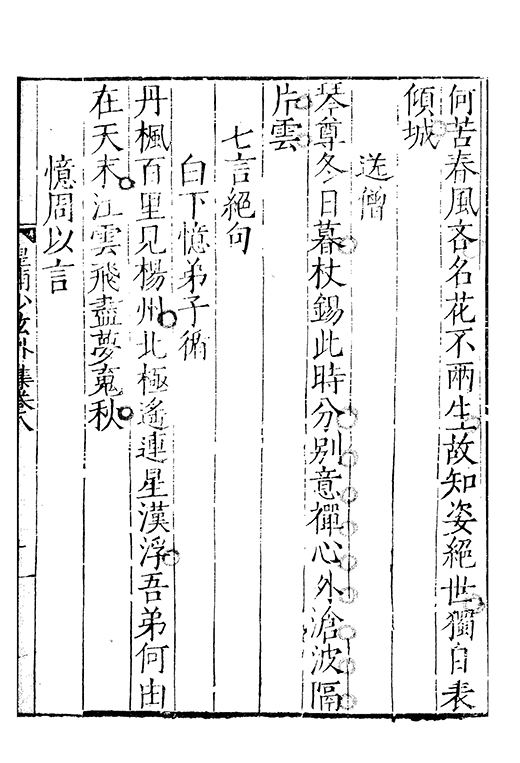 何苦春風吝名花不兩生故知姿絕世獨自表
傾城
送僧
琴尊冬日暮杖錫此時分別意禪心外滄波隔
片雲
七言絕句
白下憶弟子循
丹楓百里見楊州北極遙連星漢浮吾弟何由
在天末江雲飛盡夢䰟秋
憶周以言
皇甫少玄外集卷八